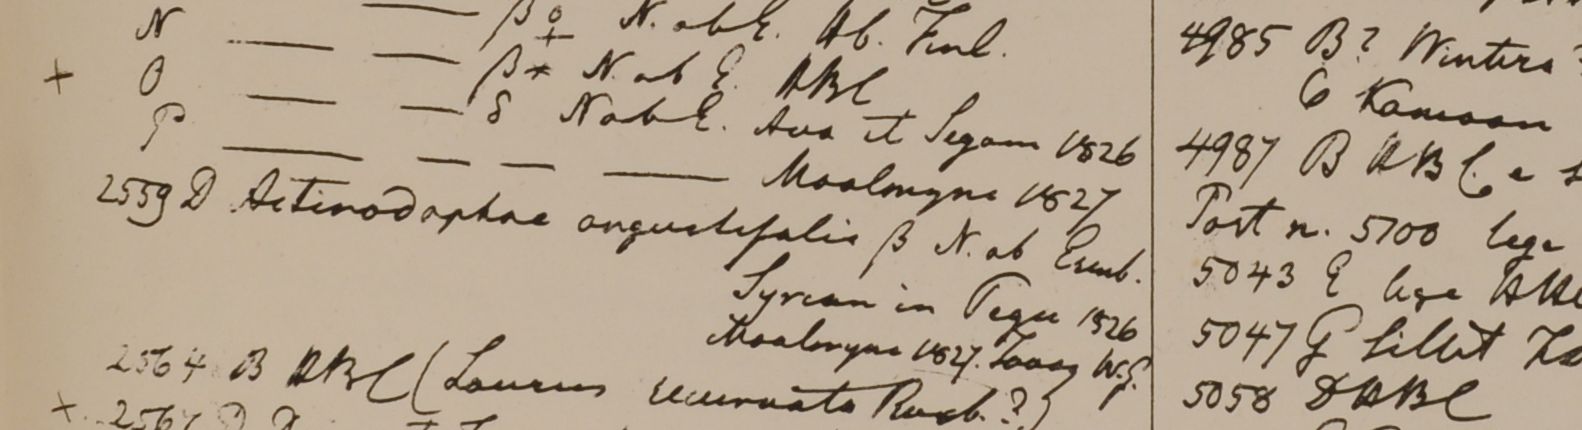 N — — β ♀ N. ab E. Hb. Finl.
+ O — — β * N. ab E. HBC
P — — δ N ab E. Ava et Segain 1826
— — — — Moalmyne 1827
2559 D Actinodaphne angustifolia β N. ab Esenb.
Syrian in Pegu 1826
Moalmyne 1827. Tavoy W.G.
2564 B HBC (Laurus recurvata Roxb.?)
+ 256
4985 B? Wintera
C Kamaon
4987 B HBC. e
Post n. 5700 lege
5043 E lege HBC
5047 G Sillet
5058 D HBC